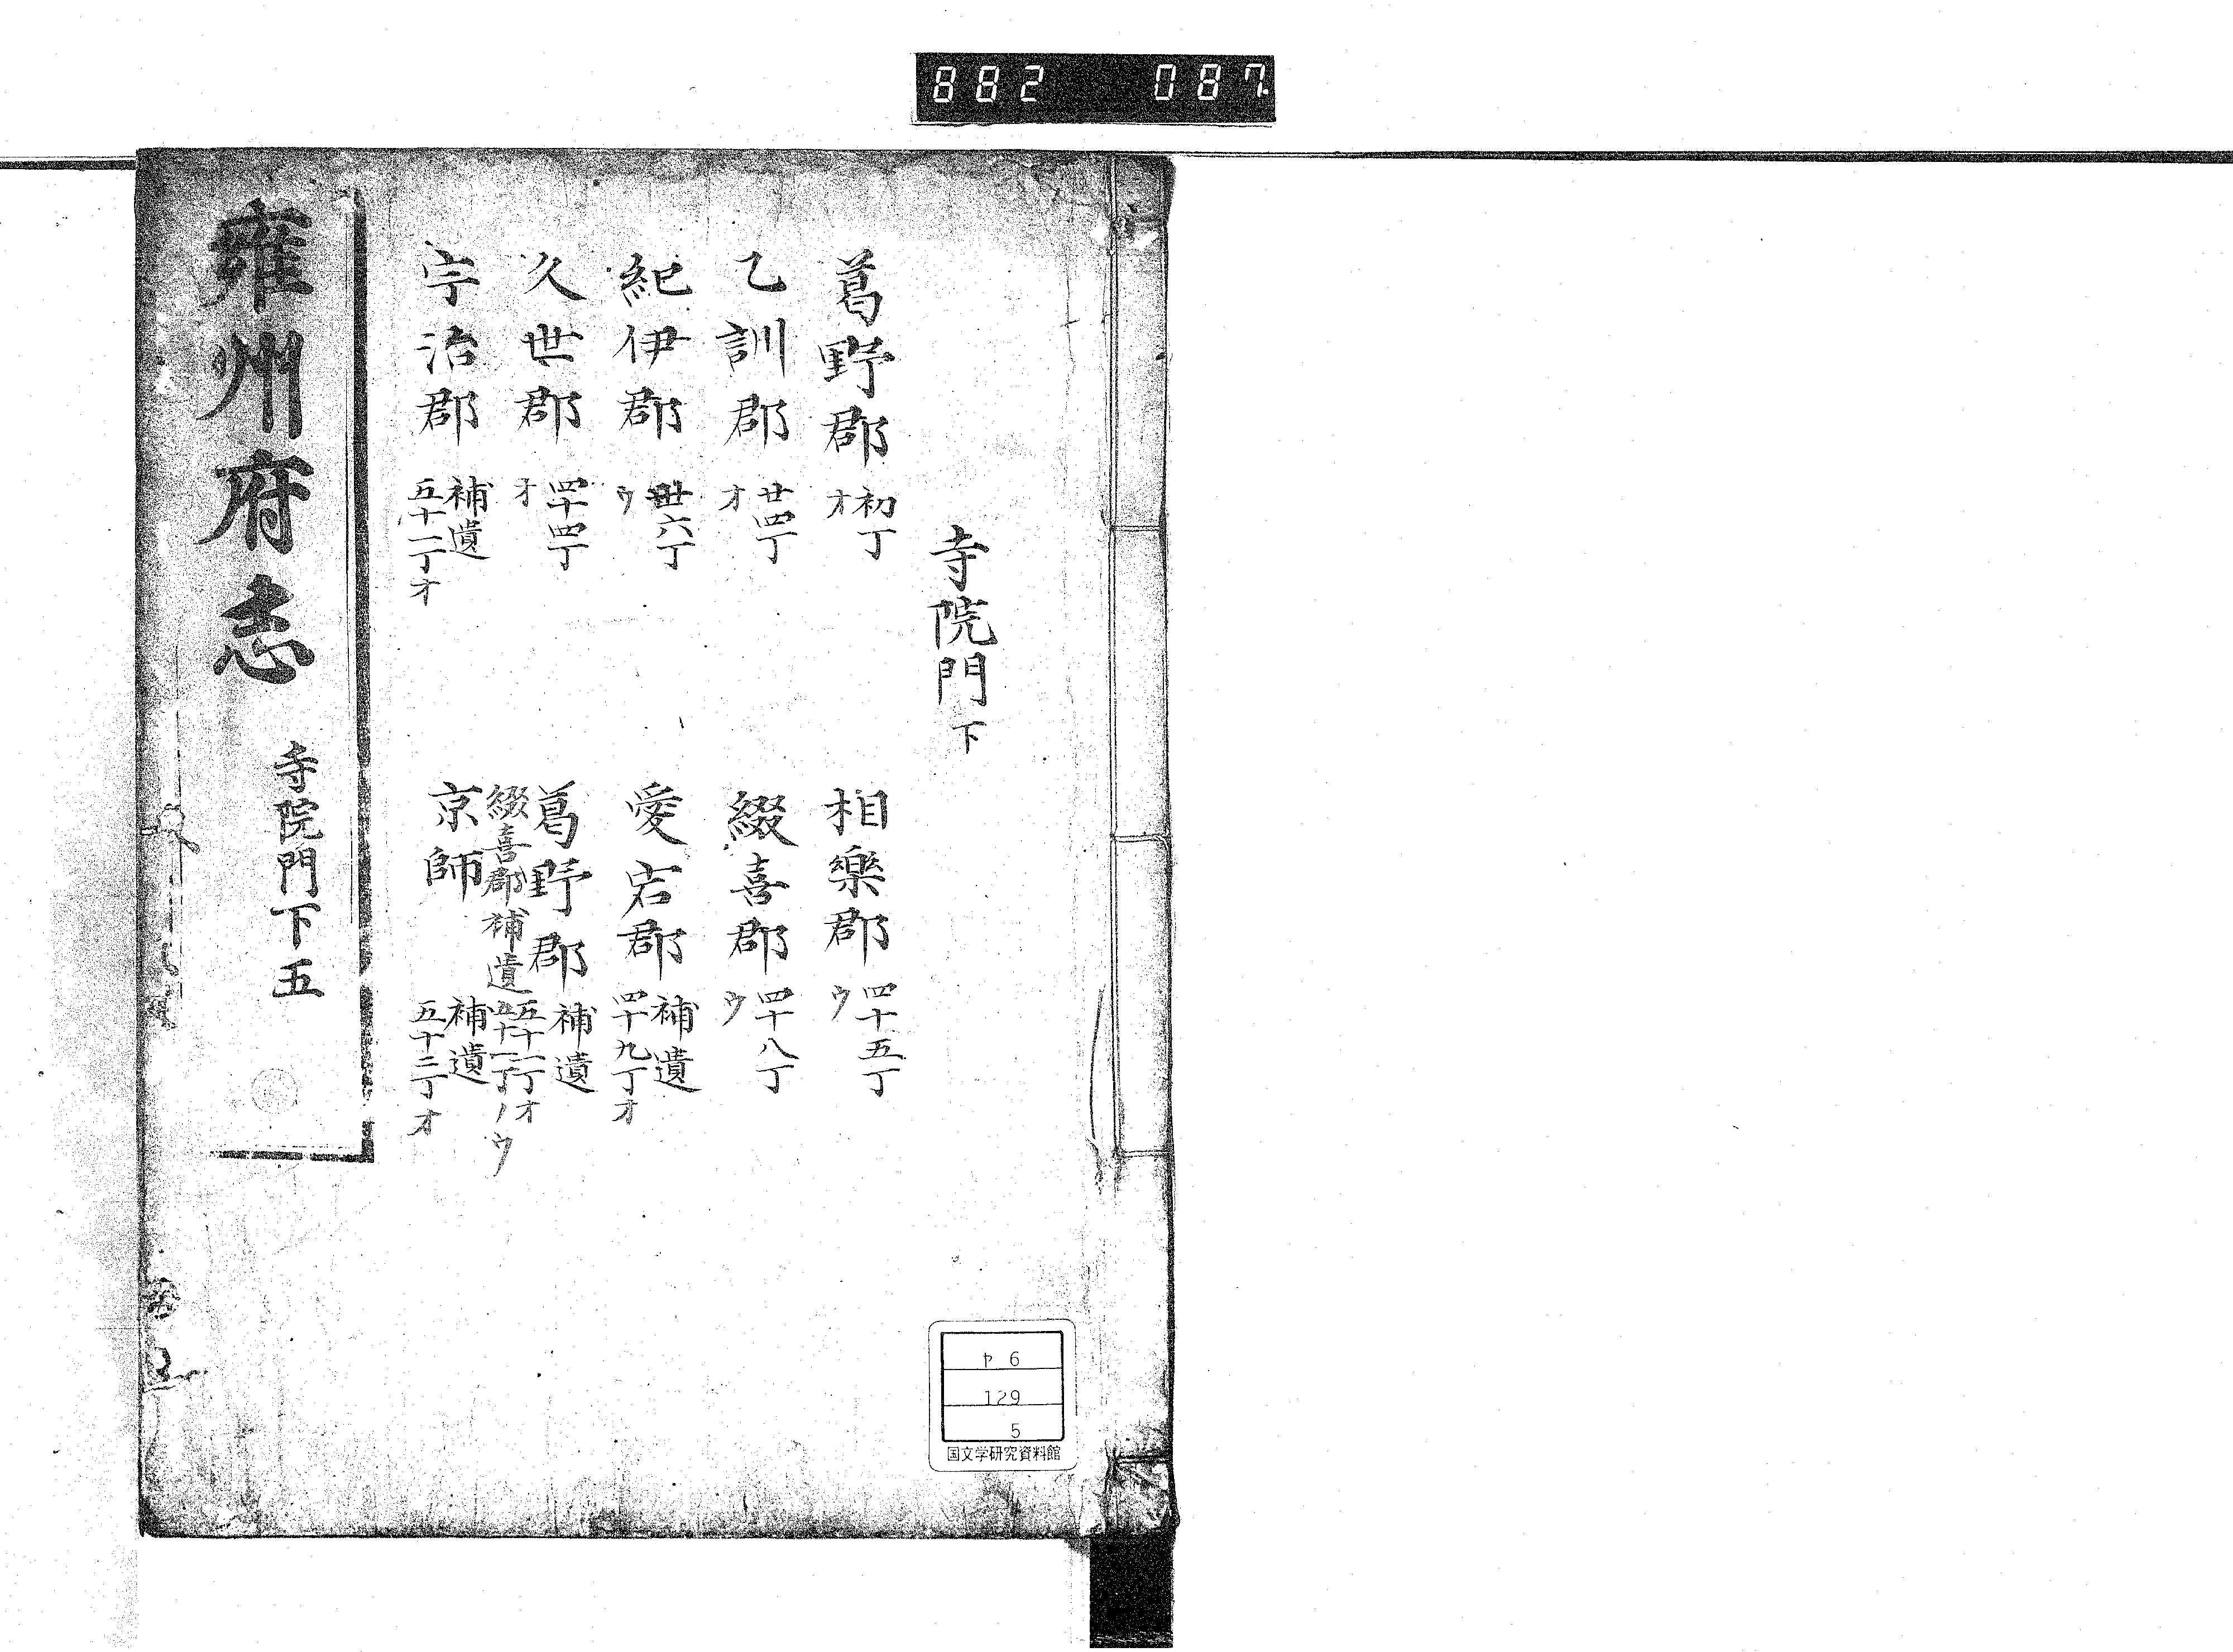 882 087
寺院門下
葛野郡 初丁オ
乙訓郡 廿四丁オ
紀伊郡 丗六丁ウ
久世郡 四十四丁オ
宇治郡 補遺五十二丁オ
相樂郡 四十五丁ウ
綴喜郡 四十八丁ウ
愛宕郡 補遺四十九丁オ
葛野郡 補遺五十一丁オ
綴喜郡補遺五十一丁ノウ
京師 補遺五十三丁オ
雍州府志 寺院門下五
ヤ6
129
5
国文学研究資料館